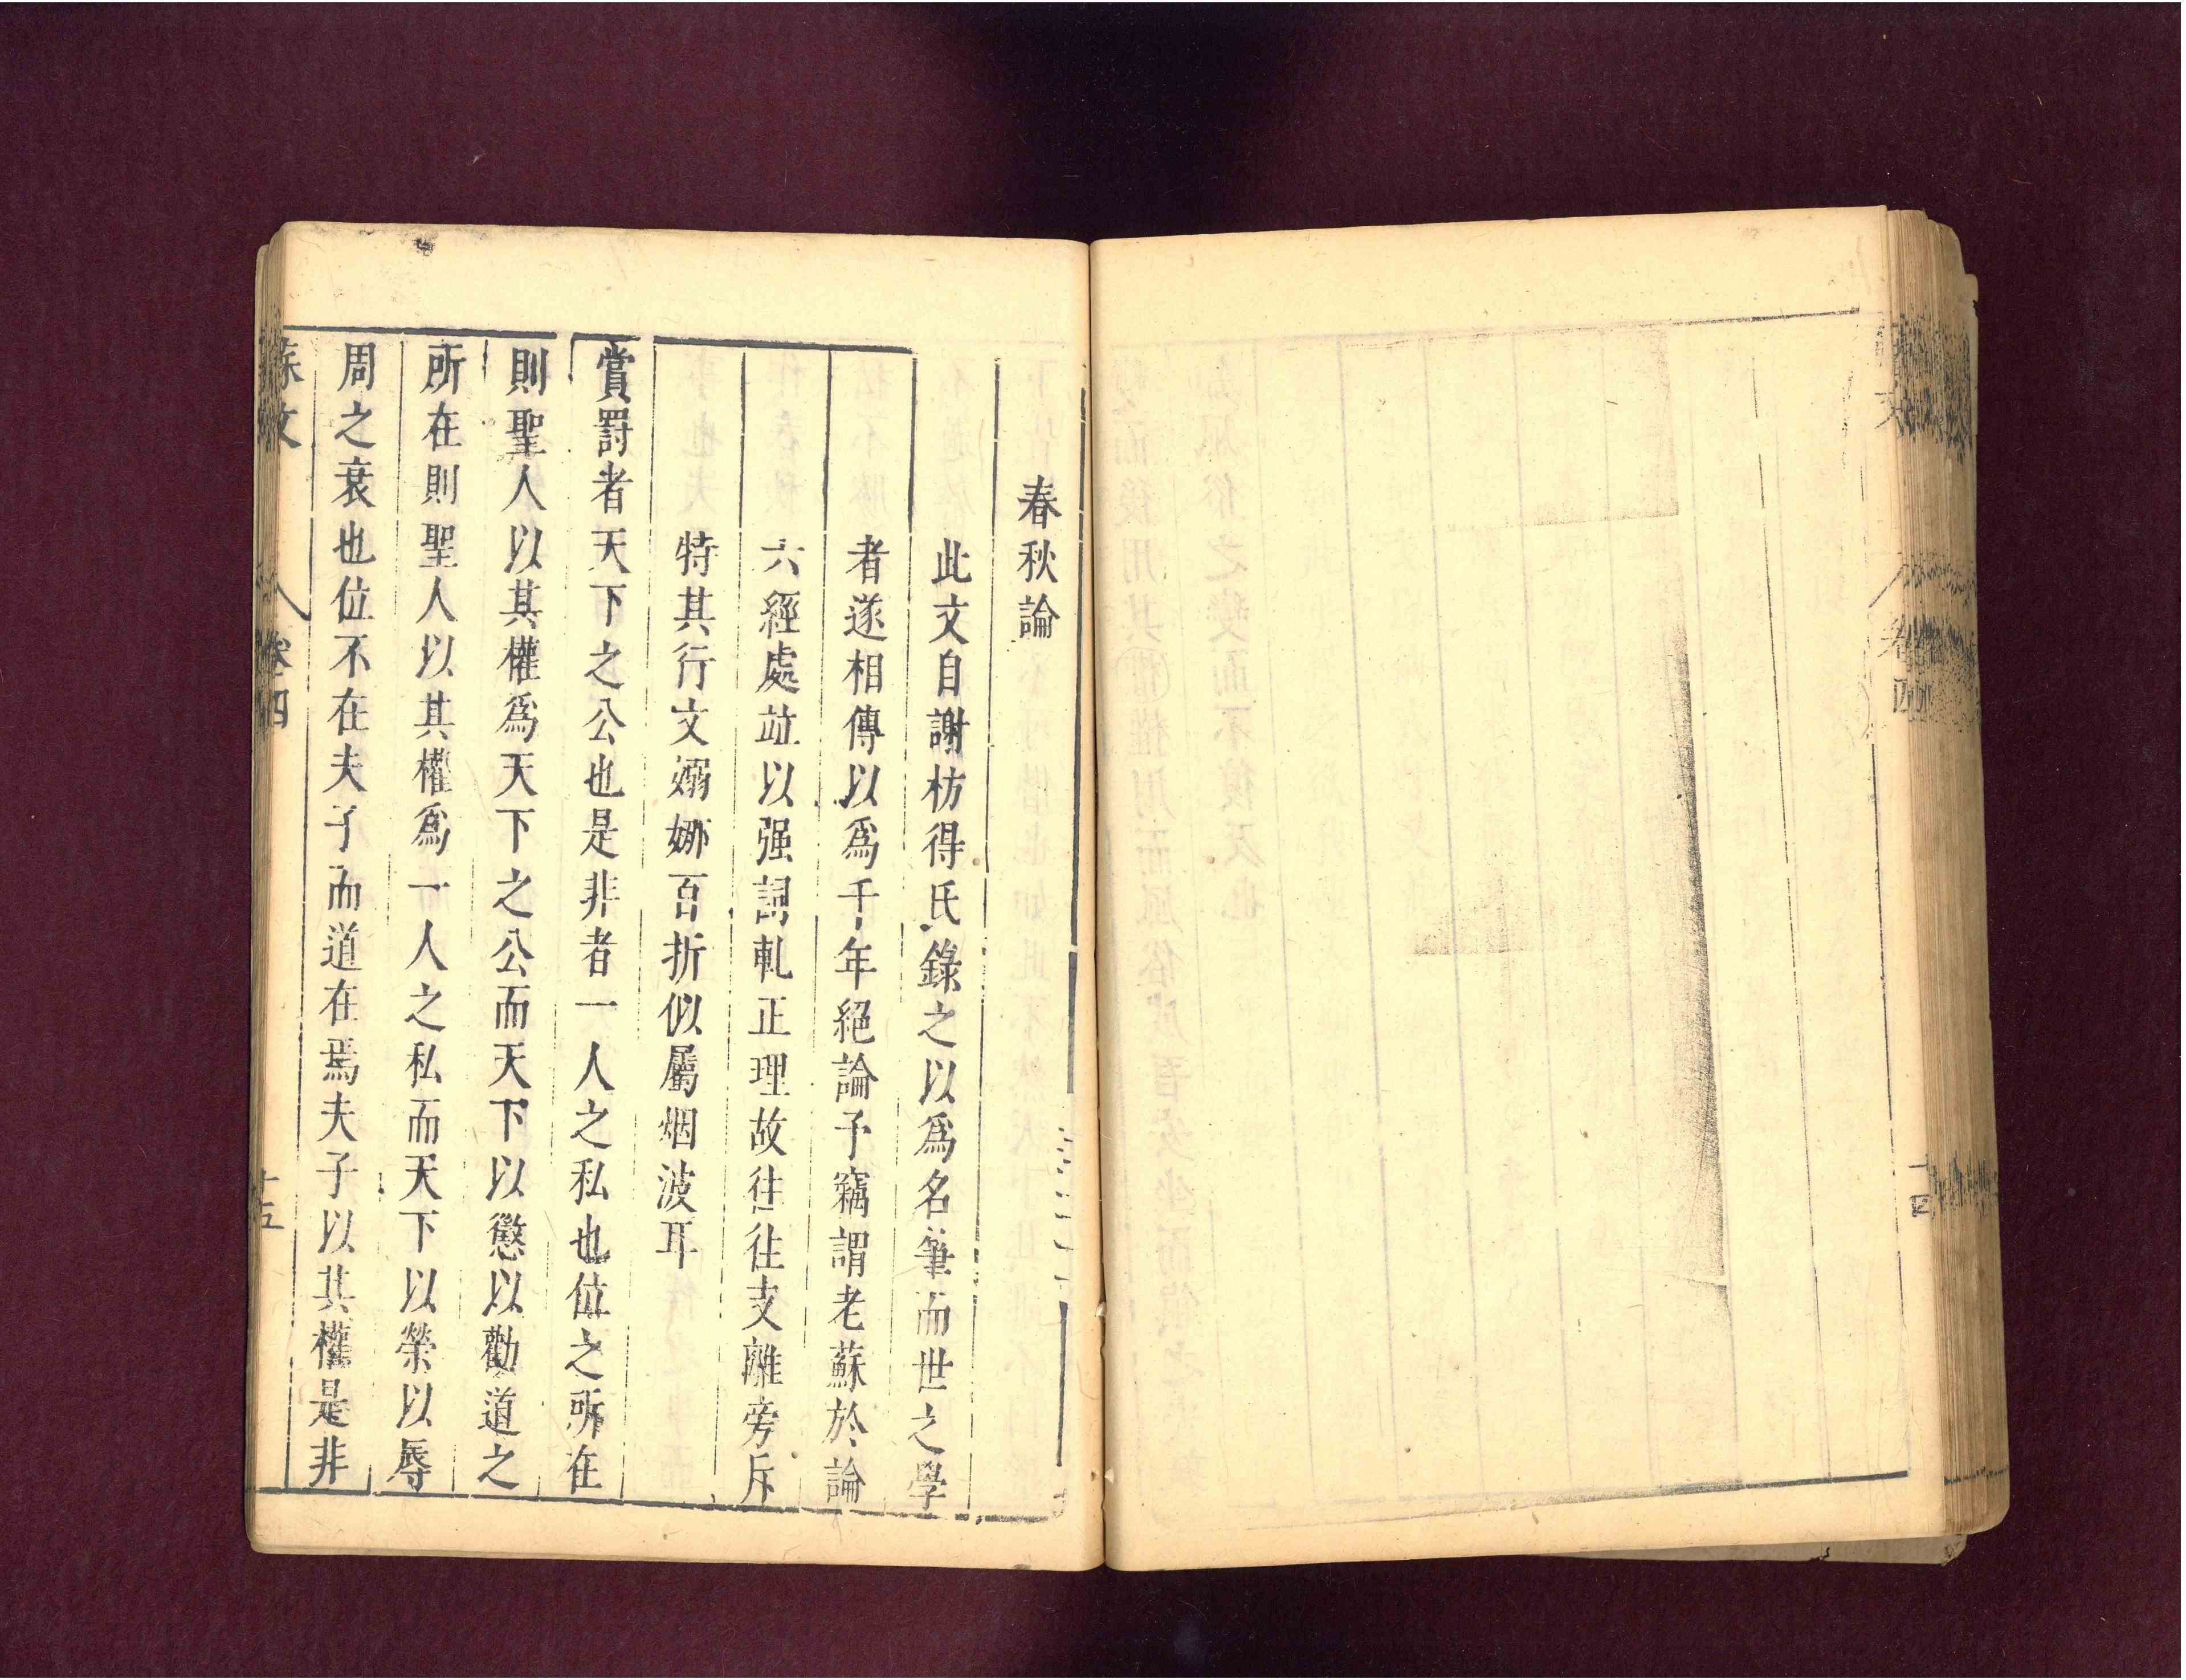 春秋論
此文自謝枋得氏錄之以爲名筆而世之學
者遂相傳以爲千年絕論予竊謂老蘇於論
六經處竝以强詞軋正理故往往支離旁斥
特其行文嫋娜百折似屬烟波耳
賞罰者天下之公也是非者一人之私也位之所在
則聖人以其權爲天下之公而天下以懲以勸道之
所在則聖人以其權爲一人之私而天下以榮以辱
周之衰也位不在夫子而道在焉夫子以其權是非
蘇文
卷四
十五